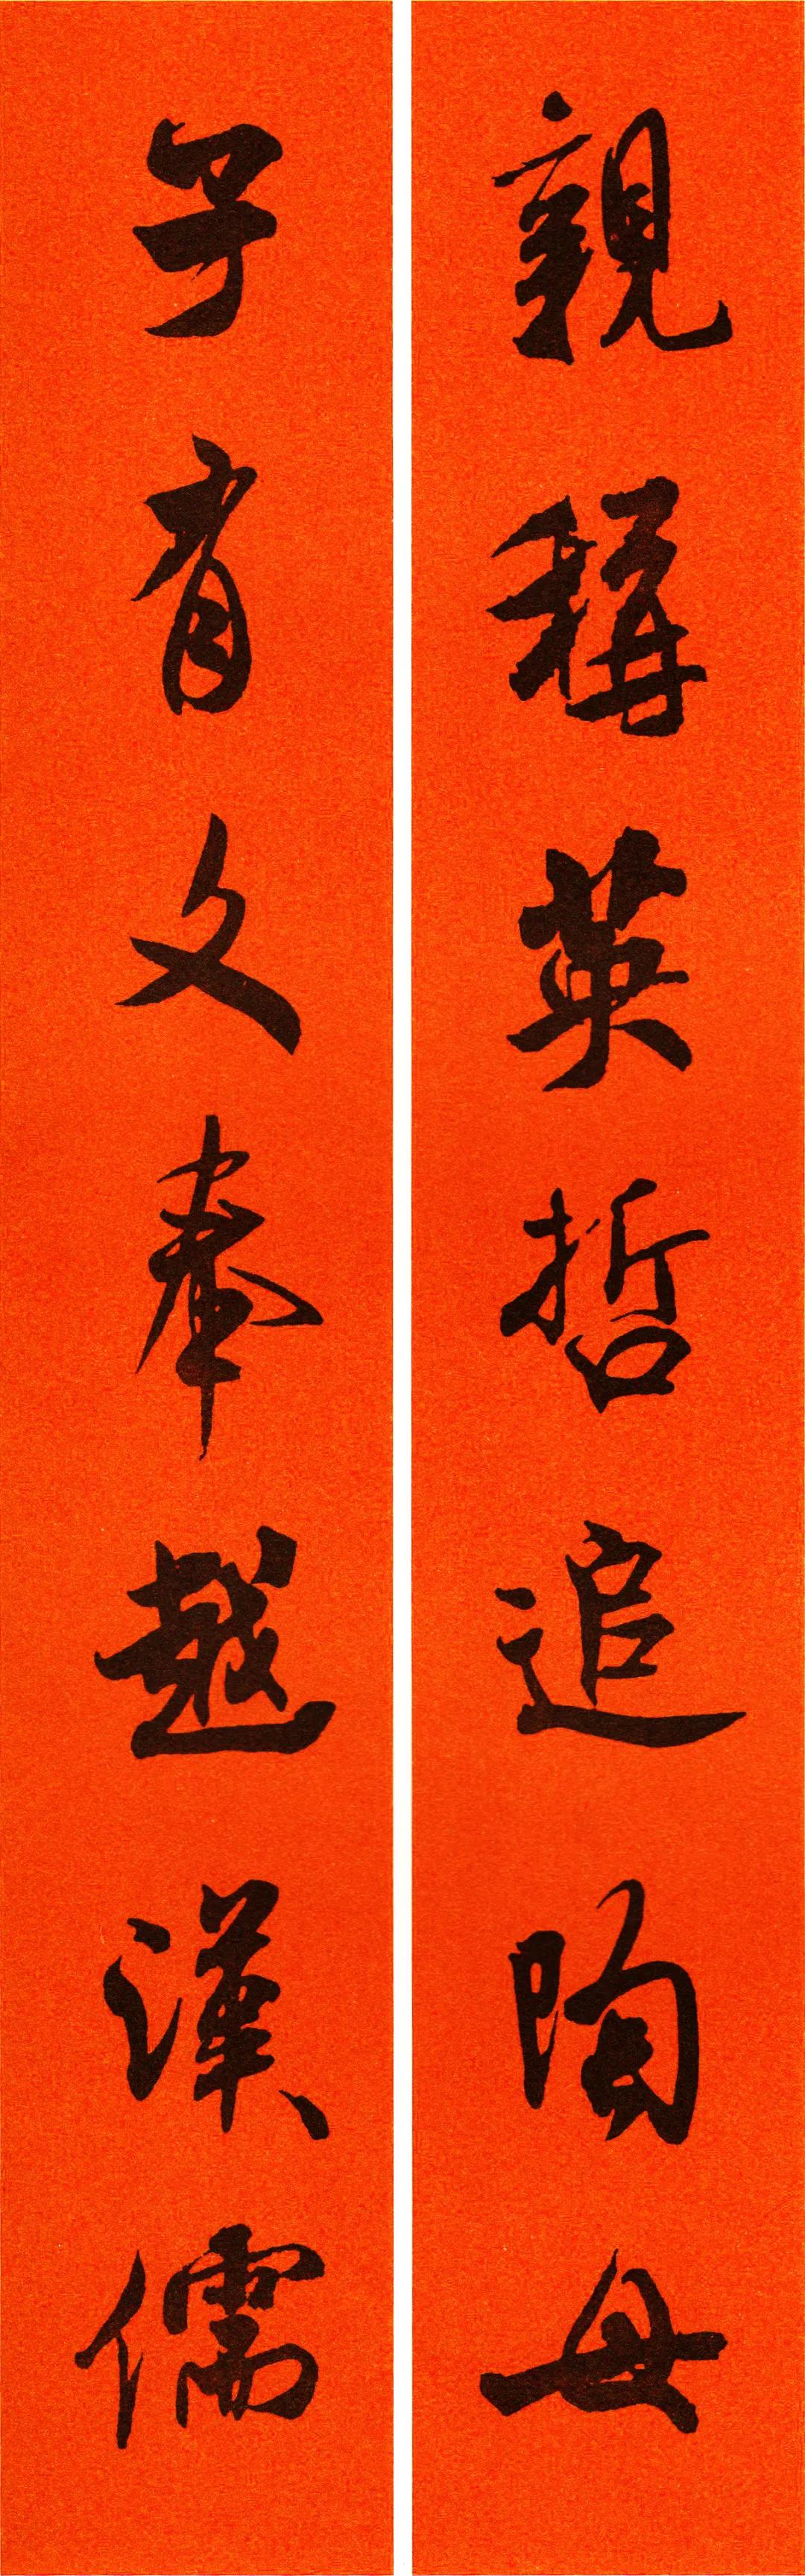 親稱英哲追陶母
子有文章越漢儒